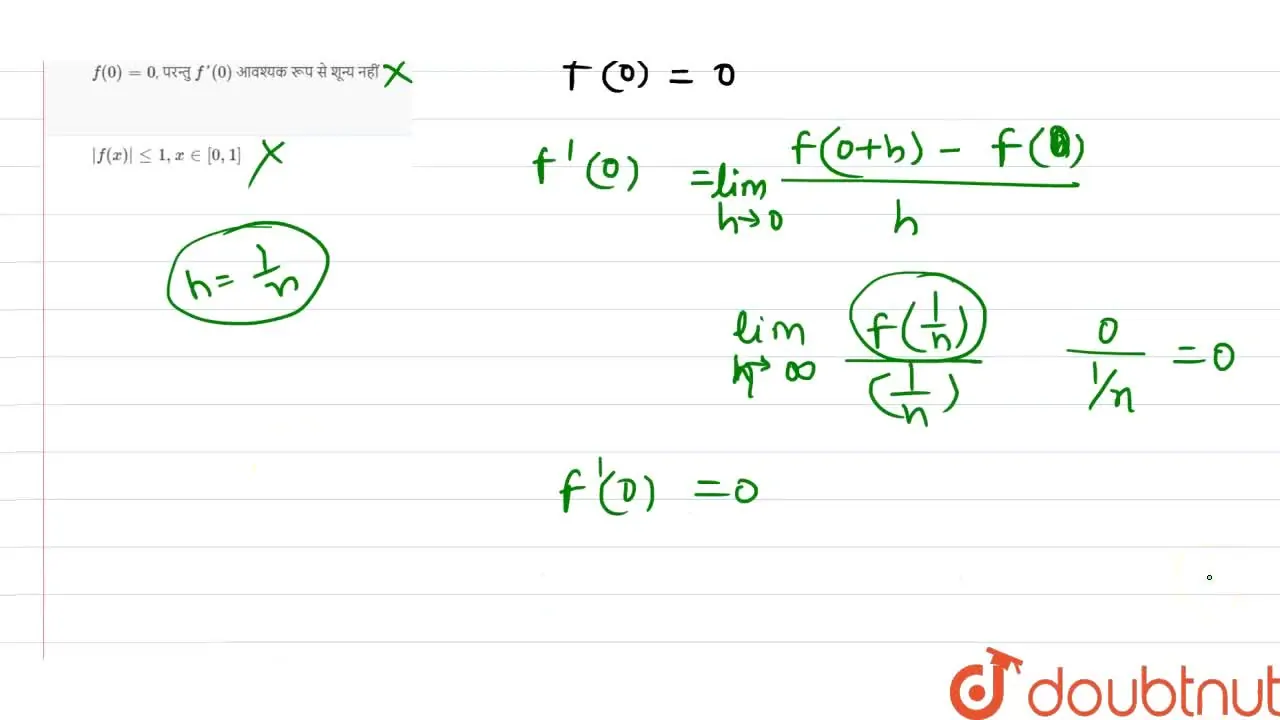 f(0) = 0, परन्तु f'(0) आवश्यक रूप से शून्य नहीं X
f(0) = 0
|f(x)| ≤ 1, x ∈ [0, 1] X
f'(0) = lim h→0 f(0+h) - f(0) / h
h = 1/n
lim n→∞ f(1/n) / (1/n) 0 / 1/n = 0
f'(0) = 0
doubtnut